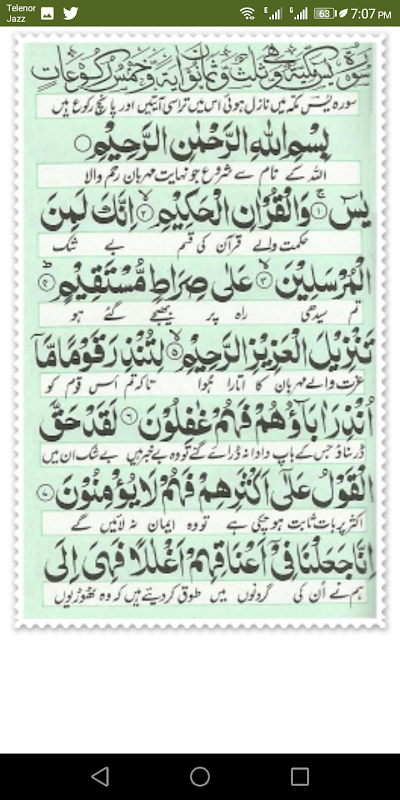 Telenor
Jazz
63 7:07 PM
سورة يس مكية وهي ثلث وثمانون اية وخمس ركوعات
سورہ یٰسٓ مکہ میں نازل ہوئی اس میں تراسی آیتیں اور پانچ رکوع ہیں
بِسْمِ اللهِ الرَّحْمٰنِ الرَّحِيْمِ
اللہ کے نام سے شروع جو نہایت مہربان رحم والا
يٰسٓ ۚ﴿۱﴾ وَالْقُرْاٰنِ الْحَكِيْمِ ۙ﴿۲﴾ اِنَّكَ لَمِنَ
حکمت والے قرآن کی قسم بے شک
الْمُرْسَلِيْنَ ۙ﴿۳﴾ عَلٰى صِرَاطٍ مُّسْتَقِيْمٍ ؕ﴿۴﴾
تم سیدھی راہ پر بھیجے گئے ہو
تَنْزِيْلَ الْعَزِيْزِ الرَّحِيْمِ ۙ﴿۵﴾ لِتُنْذِرَ قَوْمًا مَّاۤ
عزت والے مہربان کا اتارا ہوا تاکہ تم اس قوم کو
اُنْذِرَ اٰبَآؤُهُمْ فَهُمْ غٰفِلُوْنَ ﴿۶﴾ لَقَدْ حَقَّ
ڈر سناؤ جس کے باپ دادا نہ ڈرائے گئے تو وہ بے خبر ہیں بے شک ان میں
الْقَوْلُ عَلٰٓى اَكْثَرِهِمْ فَهُمْ لَا يُؤْمِنُوْنَ ﴿۷﴾
اکثر پر بات ثابت ہو چکی ہے تو وہ ایمان نہ لائیں گے
اِنَّا جَعَلْنَا فِيْٓ اَعْنَاقِهِمْ اَغْلٰلًا فَهِيَ اِلَى
ہم نے اُن کی گردنوں میں طوق کر دیئے ہیں کہ وہ ٹھوڑیوں